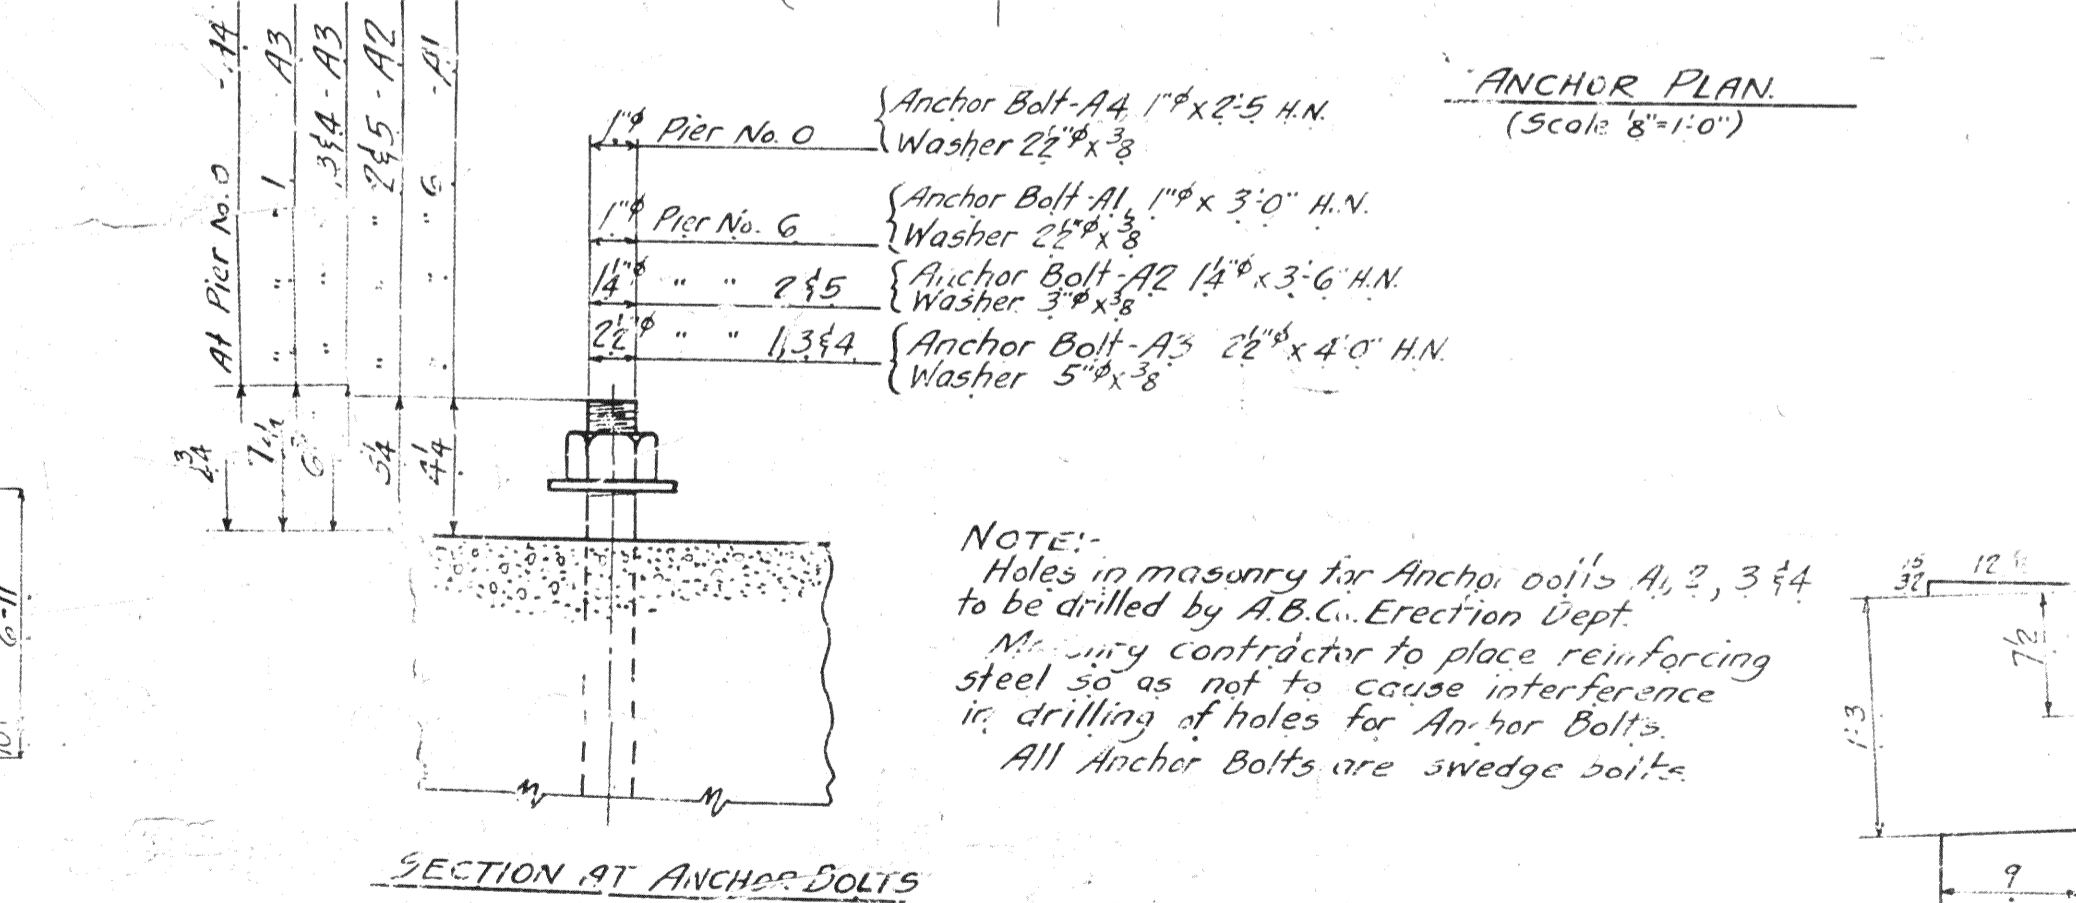 At Pier No. 0 - A4
" " 1 A3
" " 3 & 4 - A3
" " 2 & 5 - A2
" " 6 - A1
7 1/4
6
5 1/4
4 1/4
1"φ Pier No. 0
Anchor Bolt-A4 1"φ x 2'-5 H.N.
Washer 2 1/2"φ x 3/8
1"φ Pier No. 6
Anchor Bolt-A1, 1"φ x 3'-0" H.N.
Washer 2 1/2"φ x 3/8
1 1/4"φ " " 2 & 5
Anchor Bolt-A2 1 1/4"φ x 3'-6" H.N.
Washer 3"φ x 3/8
2 1/2"φ " " 1, 3 & 4
Anchor Bolt-A3 2 1/2"φ x 4'-0" H.N.
Washer 5"φ x 3/8
ANCHOR PLAN.
(Scale 1/8"=1'-0")
NOTE:-
Holes in masonry for Anchor bolts A1, 2, 3 & 4
to be drilled by A.B.Co. Erection Dept.
Masonry contractor to place reinforcing
steel so as not to cause interference
in drilling of holes for Anchor Bolts.
All Anchor Bolts are swedge bolts.
SECTION AT ANCHOR BOLTS
6-11
10
15/32
12
7 1/2
1'-3
9